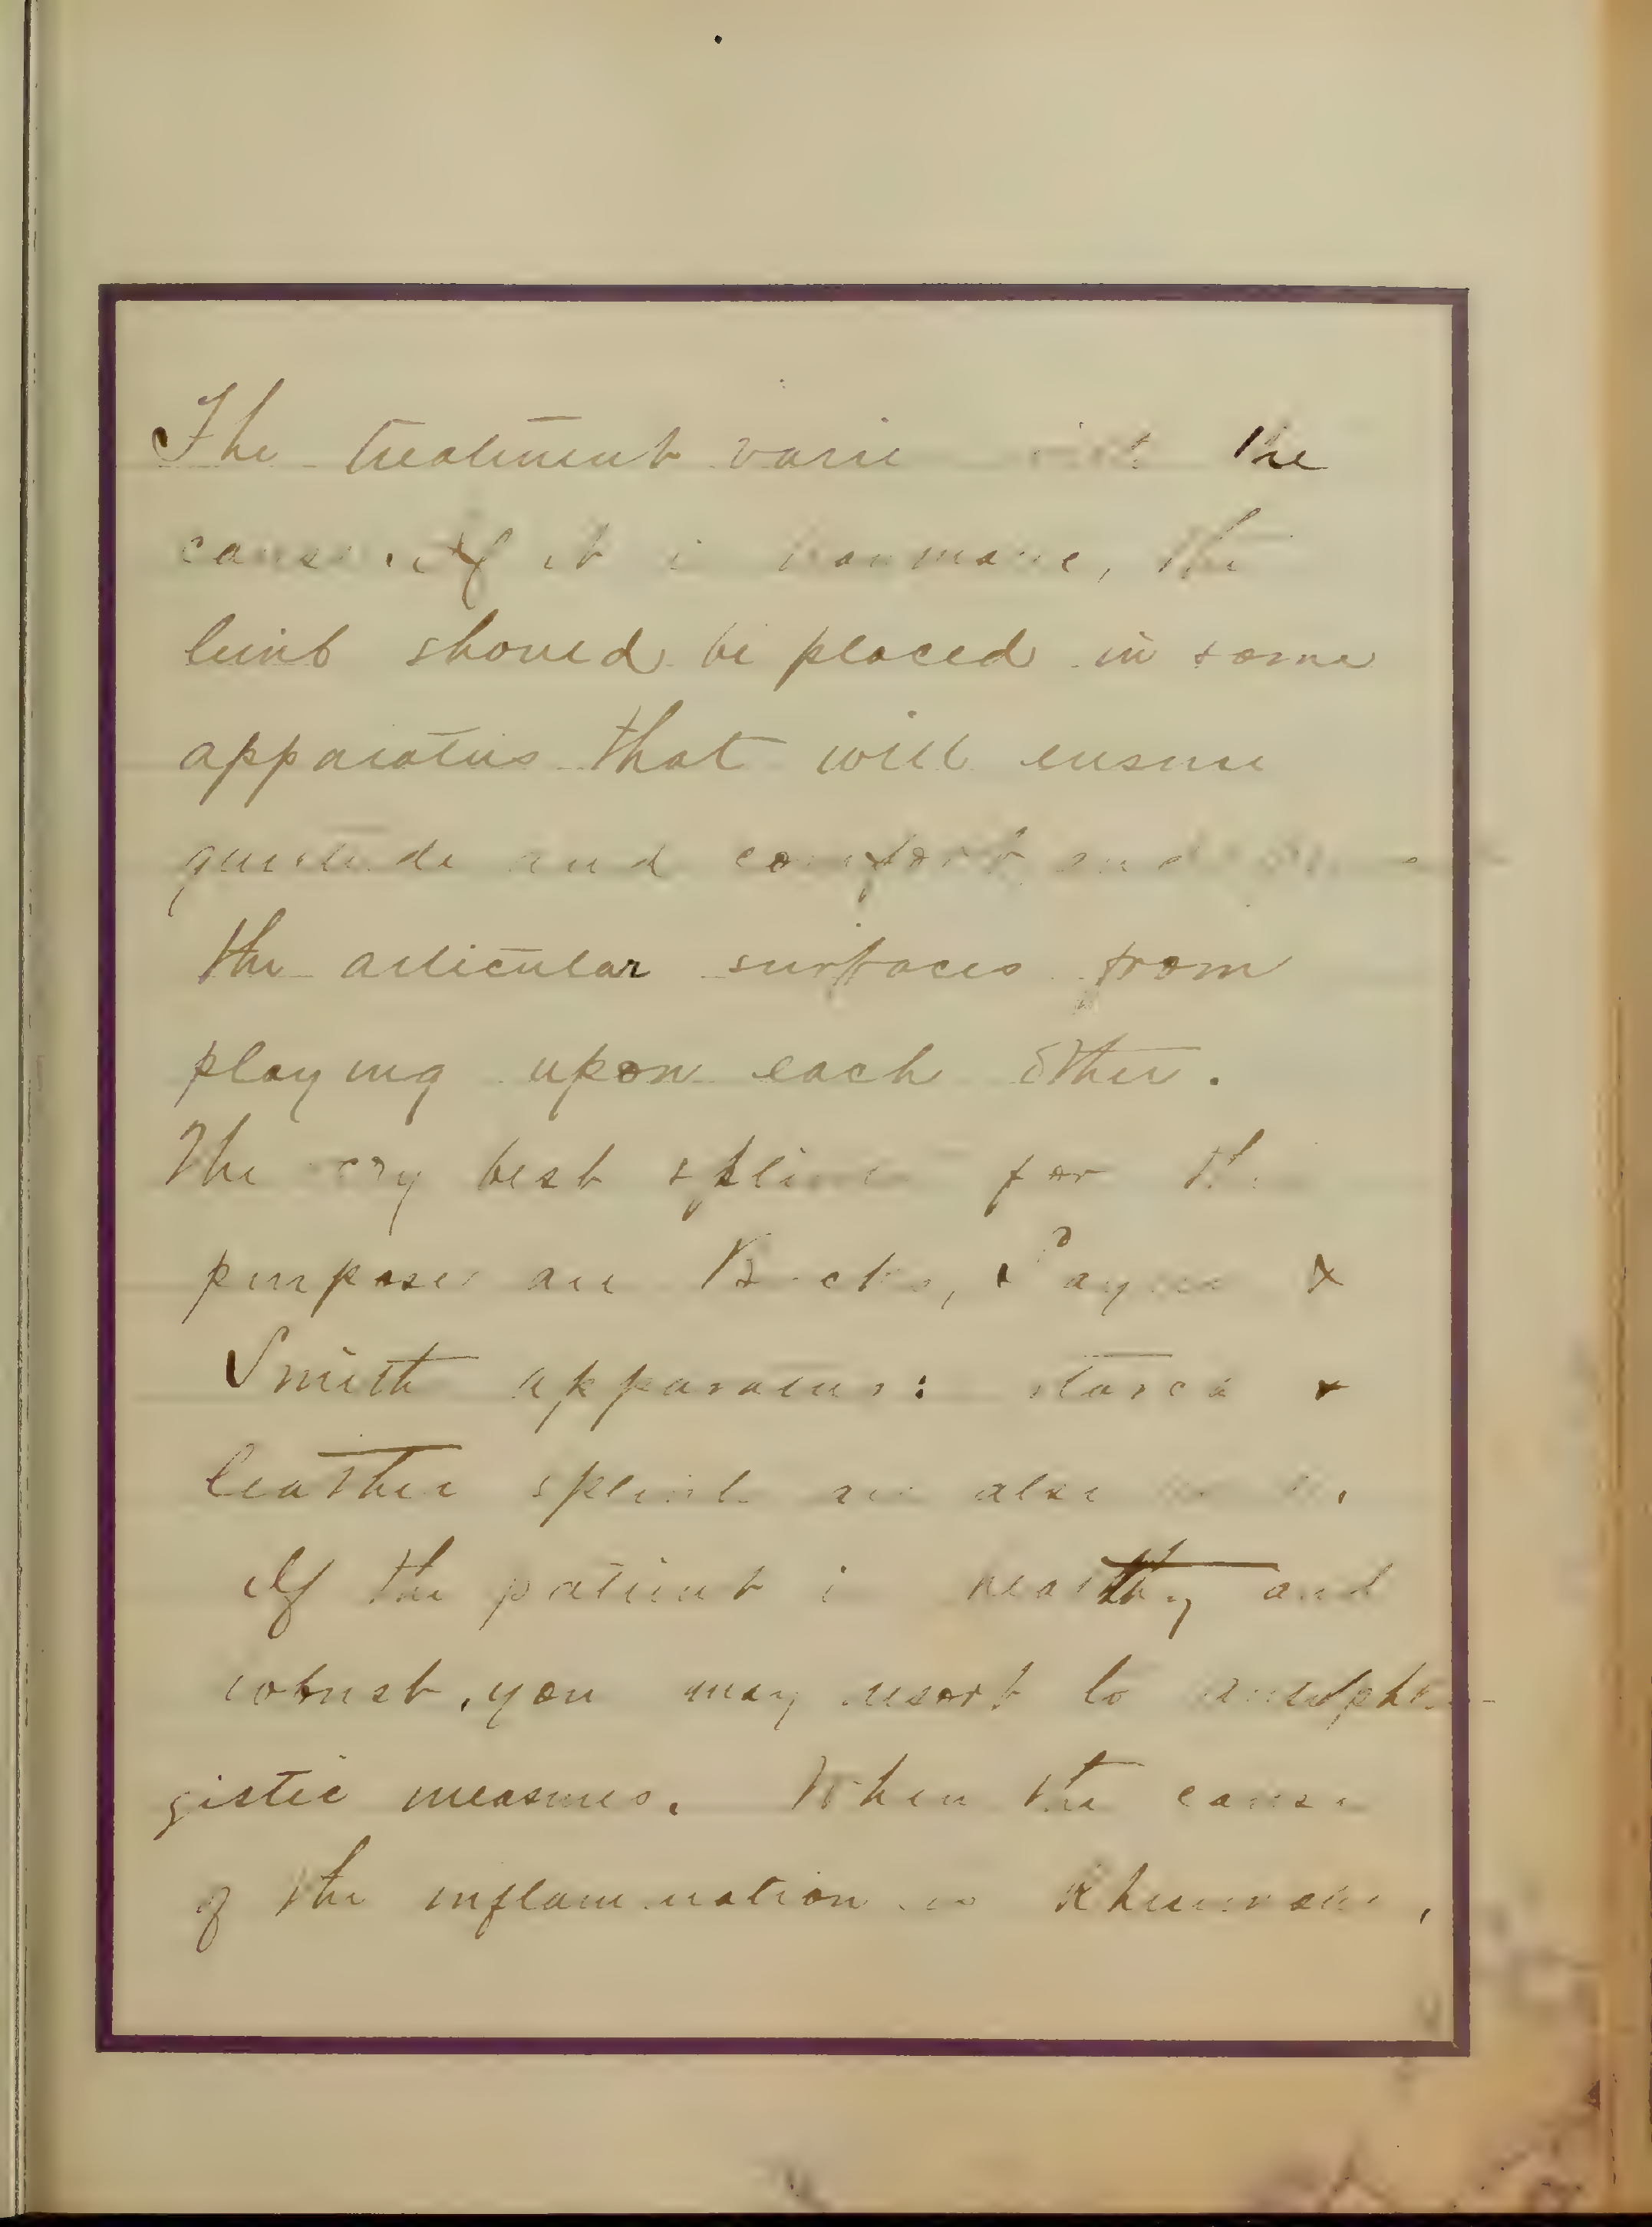 The treatment varies with the
cause. If it is traumatic, the
limb should be placed in some
apparatus that will ensure
quietude and comfort and
the articular surfaces from
playing upon each other.
The very best splints for the
purpose are Bucks, Sayres &
Smith apparatus: starch &
leather splints are also.
If the patient is healthy and
robust, you may resort to antiphlo-
gistic measures. When the cause
of the inflammation is Rheumatic,